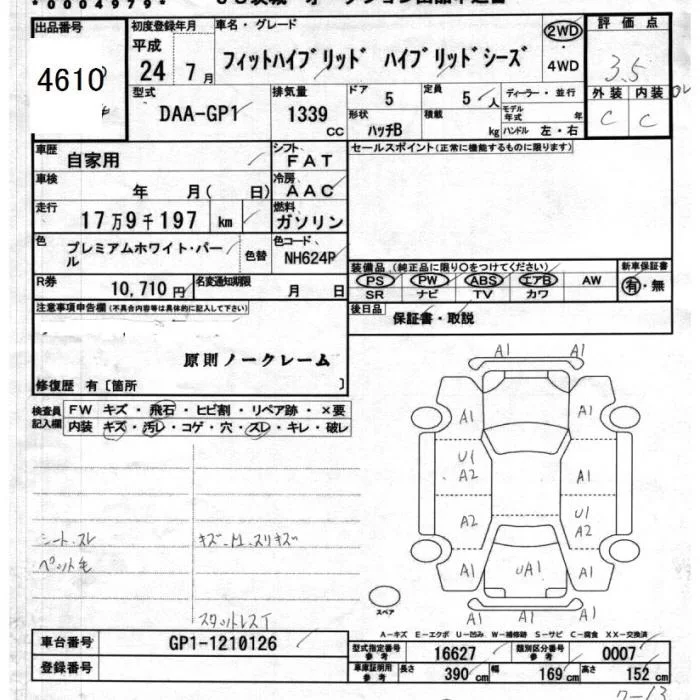 *0004979*
出品番号
4610
初度登録年月
平成
24年 7月
車名・グレード
フィットハイブリッド ハイブリッドシーズ
2WD
・
4WD
評価点
3.5
外装 内装
C C
型式
DAA-GP1
排気量
1339
CC
ドア
5
定員
5人
形状
ハッチB
積載
kg
ディーラー・並行
モデル年式 年
ハンドル 左・右
車歴
自家用
シフト
FAT
車検
年 月( 日)
冷房
AAC
走行
17万9千197 km
燃料
ガソリン
色
プレミアムホワイト・パール
色替
色コード
NH624P
R券
10,710円
名変通知期限
月 日
セールスポイント(正常に機能するものに限ります)
装備品(純正品に限り○をつけてください)
PS PW ABS エアB AW
SR ナビ TV カワ
新車保証書
有・無
後日品
保証書・取説
注意事項申告欄(不具合内容等は具体的に記入して下さい)
原則ノークレーム
修復歴 有〔箇所 〕
検査員記入欄
FW キズ・飛石・ヒビ割・リペア跡・×要
内装 キズ・汚レ・コゲ・穴・スレ・キレ・破レ
シート、スレ
ペット毛
キズ
スリキズ
スタットレスT
A1 A1
A1 A1
U1
A2 A1
A2
U1
A2
A1 UA1 A1
A1 A1
スペア
A-キズ E-エクボ U-凹み W-補修跡 S-サビ C-腐食 XX-交換済
車台番号
GP1-1210126
登録番号
型式指定番号
参考
16627
類別区分番号
参考
0007
車庫証明用
参考
長さ 390 cm 幅 169 cm 高さ 152 cm